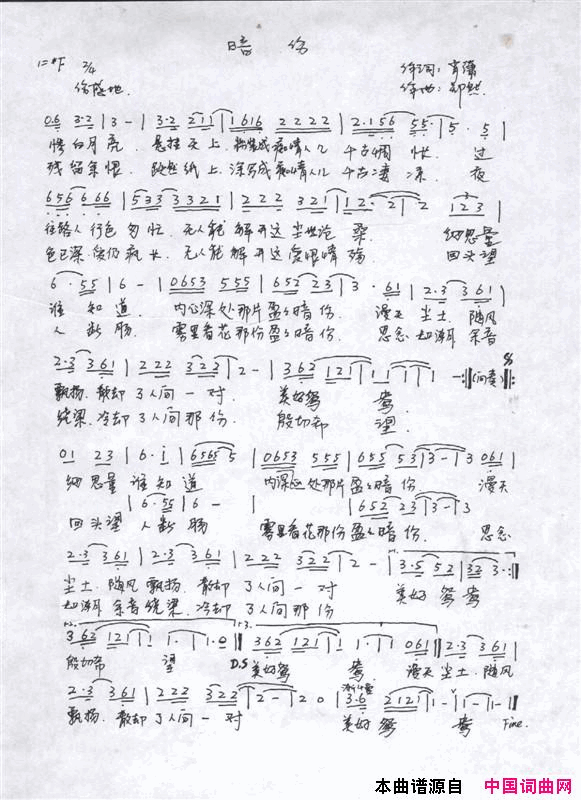 暗伤
1=#F 2/4
作词：
伤感地. 作曲：郑然
0.6 3.2 | 3 - | 3.2 211 | 1616 2222 | 2.156 55 | 5. 5 |
惨白月亮. 悬挂天上. 粉装成痴情人儿 千古惆怅. 过
残留余恨. 跃然纸上. 深写成痴情人儿 千古凄凉. 夜
656 666 | 533 3321 | 222 321 | 12.2 | 2 123 |
往路人行色匆忙. 无人能解开这尘世沧桑. 细思量
色已深. 伤仍疯长. 无人能解开这爱恨情殇 回头望
6.55 | 6 - | 0653 555 | 652 23 | 3. 61 | 2.3 361 |
谁知道. 内心深处那片盈盈暗伤. 漫天尘土. 随风
人断肠 雾里看花那份盈盈暗伤. 思念如潮 余音
2.3 361 | 222 323 | 2 - | 362 121 | 1 1 | 1 - :‖(间奏)
飘扬. 散却了人间一对 美好鸳鸯
绕梁. 冷却了人间那份 殷切希望.
01 23 | 6.i | 6565 5 | 0653 555 | 655 53 | 3 - | 3 061 |
细思量谁知道 内深处那片盈盈暗伤 漫天
| 6.55 | 6 - | 652 23 | 3 - | 3
回头望 人断肠 雾里看花那份盈盈暗伤. 思念
2.3 361 | 2.3 361 | 222 322 | 2 - | 2 - | 3.5 52 | 32 3. :‖
尘土. 随风飘扬. 散却了人间一对 美好鸳鸯
如潮 余音绕梁. 冷却了人间那份
362 121 | 1 1. | 1.0 ‖ 362 121 | 1 1. | 1 061 ‖ 2.3 361 |
殷切希望 D.S 美好鸳鸯 漫天尘土. 随风
2.3 361 | 222 322 | 2 - | 2 0 | 3.6 2121 | 1 - | 1 - | 1 - ‖
飘扬. 散却了人间一对 美好鸳鸯 Fine.
本曲谱源自 中国词曲网